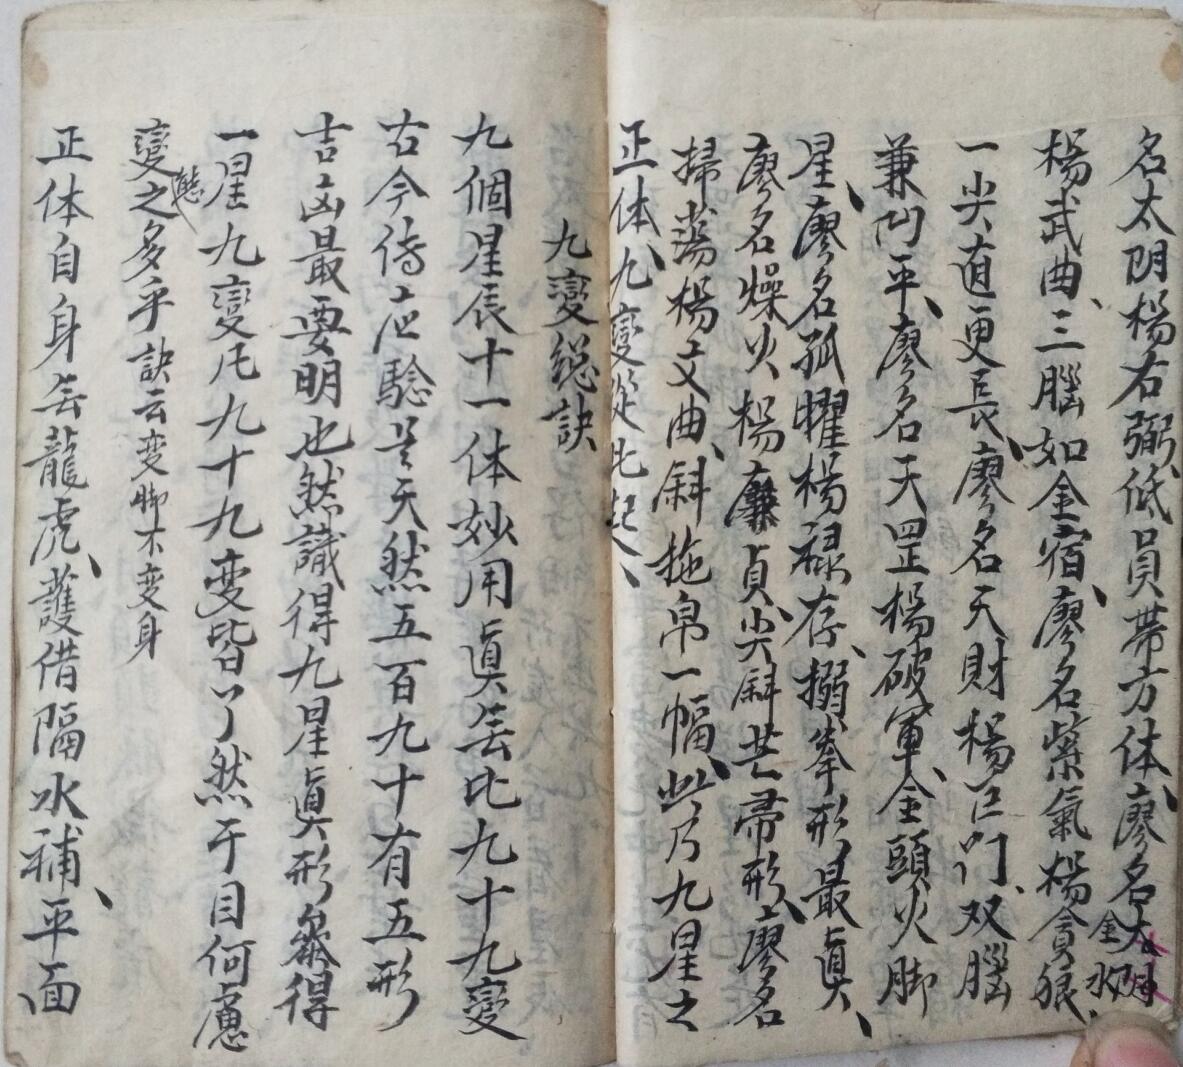 名太阴楊右弼、低員帶方体、廖名太阴
金水
楊武曲、三腦如金宿、廖名紫氣楊貪狼、
一尖直更長、廖名天財楊巨门、双腦
兼凹平、廖名天罡楊破軍、金頭火脚
星、廖名孤曜楊禄存、搦拳形最真、
廖名燥火楊廉貞、尖斜芒帚形、廖名
掃蕩楊文曲、斜拖帛一幅、此乃九星之
正体、九變從此起、
九變総訣
九個星辰十一体妙用眞無比九十九變
古今傳应驗是天然五百九十有五形
吉凶最要明也然識得九星眞形象得
一星九變凡九十九变皆了然于目何慮
變態之多乎訣云变脚不变身
正体自身無龍虎、護借隔水補、平面